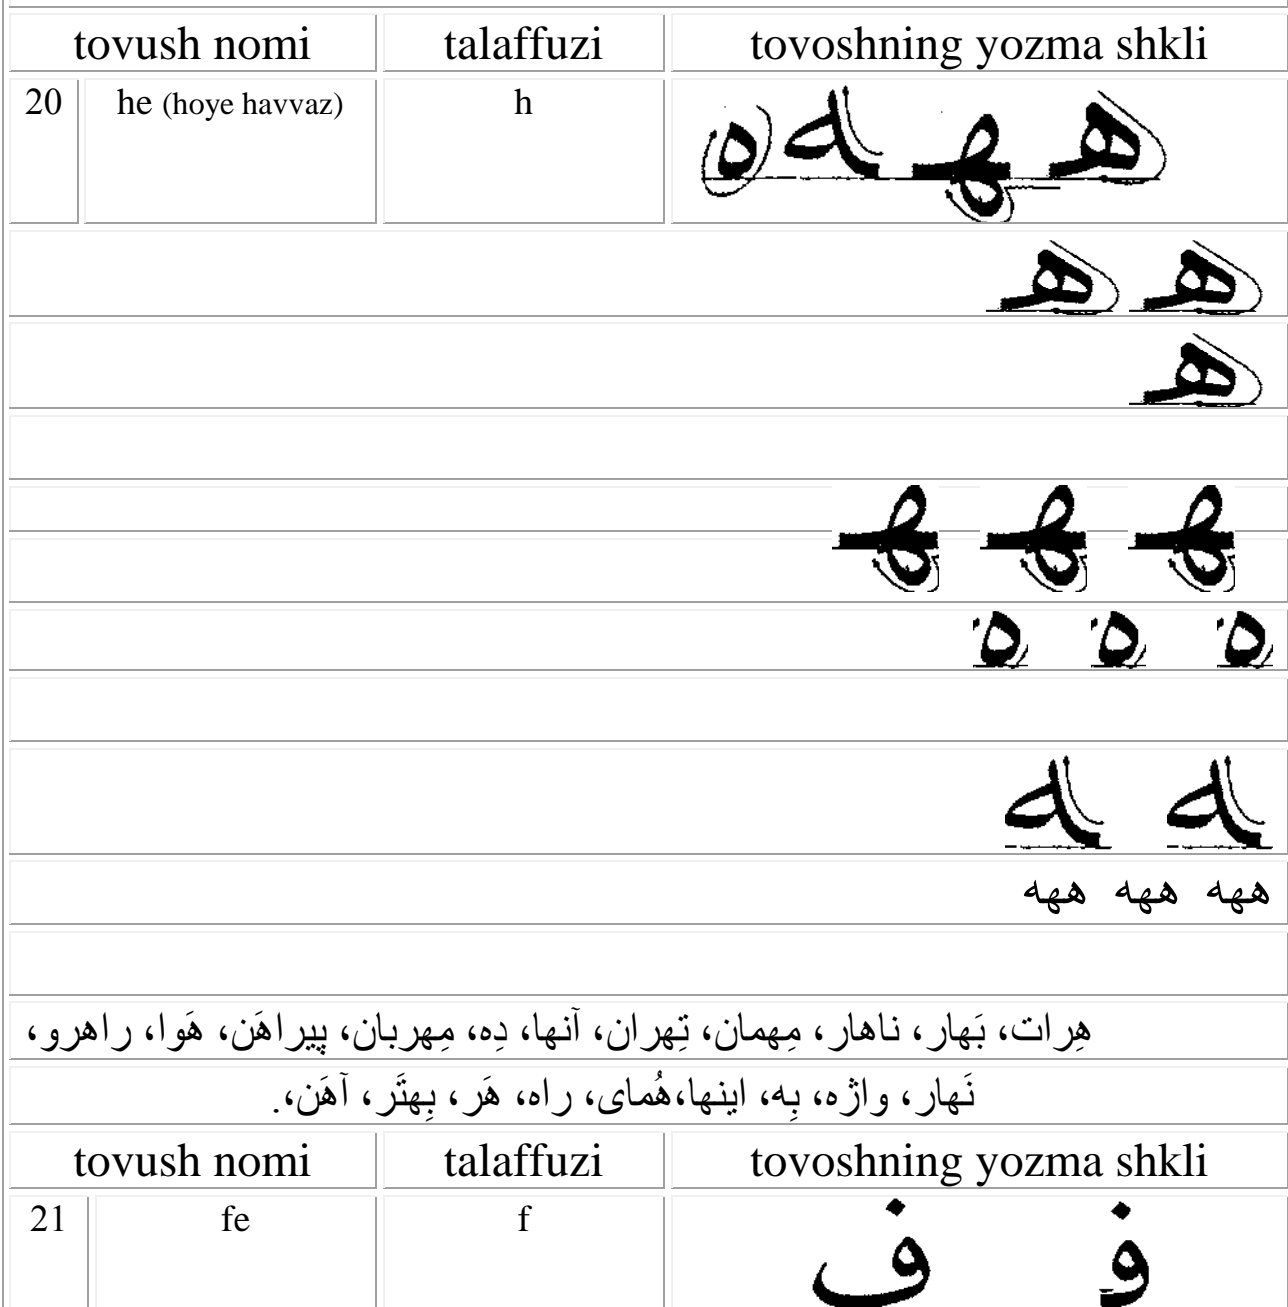 tovush nomi talaffuzi tovoshning yozma shkli
20 he (hoye havvaz) h هـ ـهـ ـه ه
هـ هـ
هـ
ـهـ ـهـ ـهـ
ه ه ه
ـه ـه
ههه ههه ههه
هِرات، بَهار، ناهار، مِهمان، تِهران، آنها، دِه، مِهربان، پیراهَن، هَوا، راهرو،
نَهار، واژه، بِه، اینها،هُمای، راه، هَر، بِهتَر، آهَن،.
tovush nomi talaffuzi tovoshning yozma shkli
21 fe f فـ ف